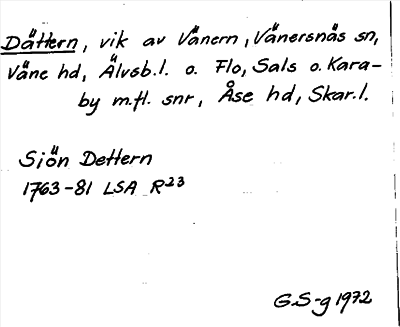 Dättern, vik av Vänern, Vänersnäs sn,
Väne hd, Älvsb.l. o. Flo, Sals o. Kara-
by m.fl. snr, Åse hd, Skar.l.
Sjön Dettern
1763-81 LSA R23
G.S-g 1972